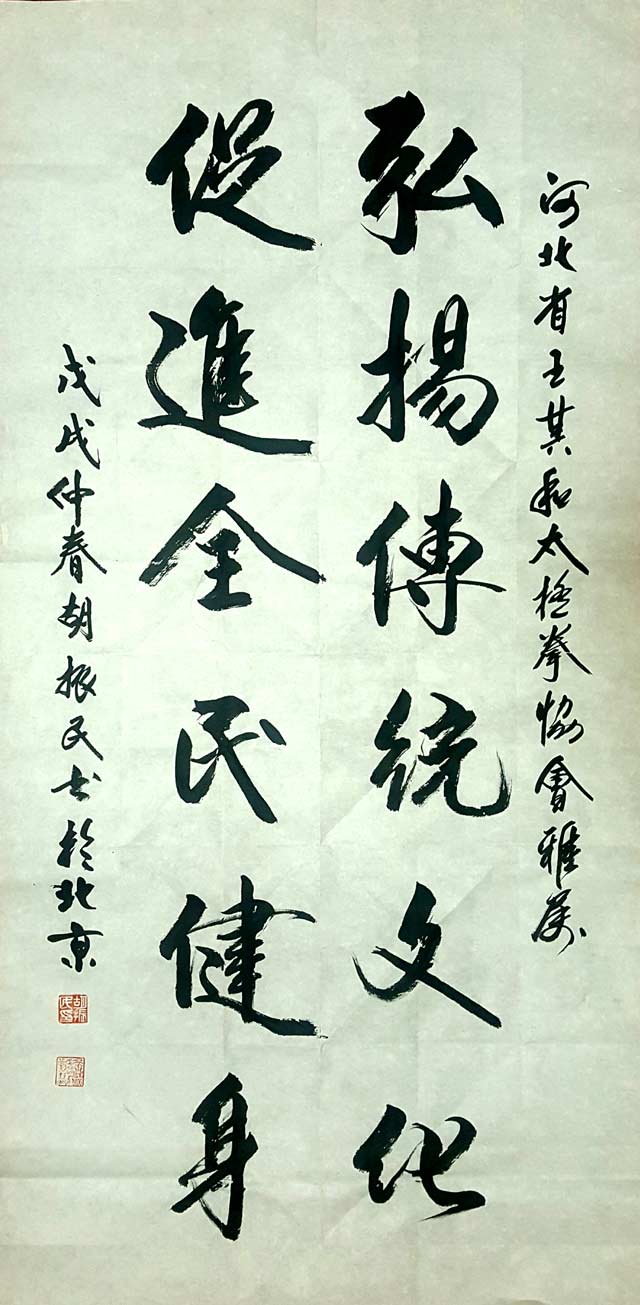 河北省王其和太極拳協會雅屬
弘揚傳統文化
促進全民健身
戊戌仲春胡振民书於北京
胡振民印